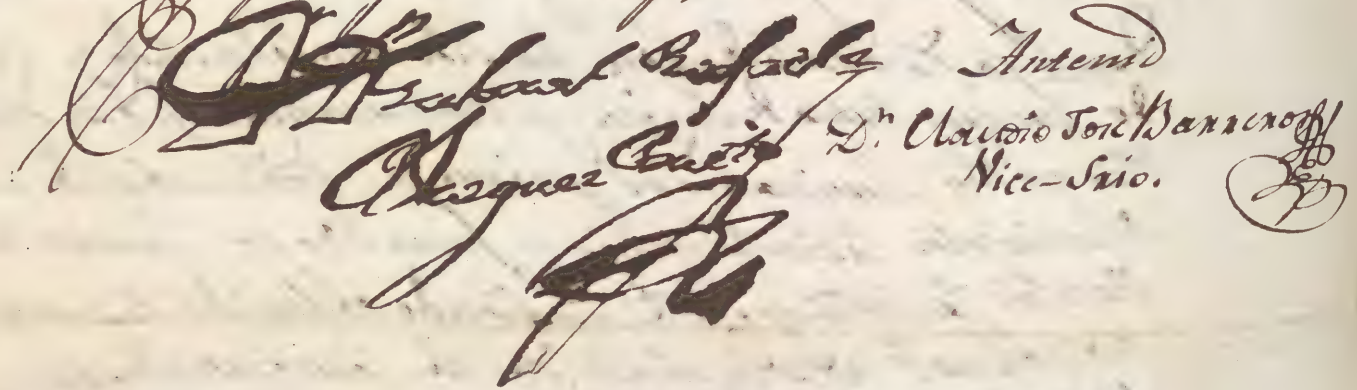 Dn Gabriel Rafaela
Vasquez
Antemi
Dn Claudio José Barreno
Vice-Srio.